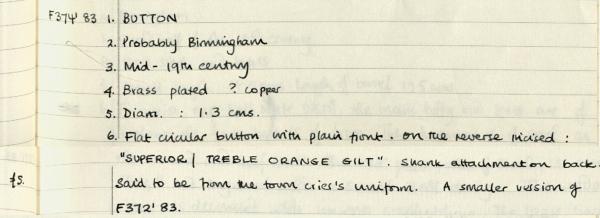 F374' 83 1. BUTTON
2. Probably Birmingham
3. Mid-19th century
4. Brass plated ? copper
5. Diam. : 1.3 cms.
6. Flat circular button with plain front. On the reverse incised :
"SUPERIOR | TREBLE ORANGE GILT". Shank attachment on back.
£5. Said to be from the town crier's uniform. A smaller version of
F372' 83.